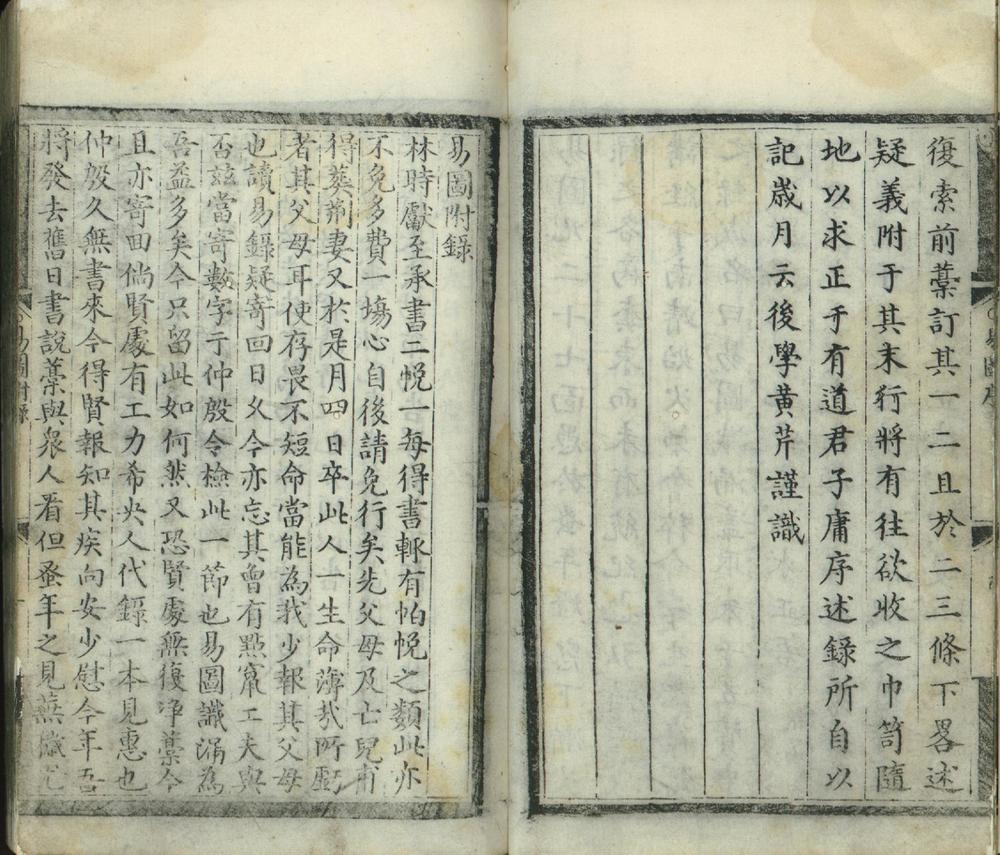 復索前藁訂其一二且於二三條下畧述
疑義附于其末行將有往欲收之巾笥隨
地以求正于有道君子庸序述錄所自以
記歲月云後學黃芹謹識
易圖附錄
林時獻至承書二帨一每得書輒有帕帨之類此亦
不免多費一場心自後請免行矣先父母及亡兒甫
得葬荊妻又於是月四日卒此人一生命薄我所虧
者其父母耳使存畏不短命當能為我少報其父母
也讀易錄疑寄回日久今亦忘其曾有點竄工夫與
否茲當寄數字于仲殷令檢此一節也易圖識漏為
吾益多矣今只留此如何然又恐賢處無復淨藁今
且亦寄回倘賢處有工力希央人代錄一本見惠也
仲殷久無書來今得賢報知其疾向安少慰今年吾
將發去舊日書說藁與衆人看但蚤年之見蕪
易圖附錄
易圖序